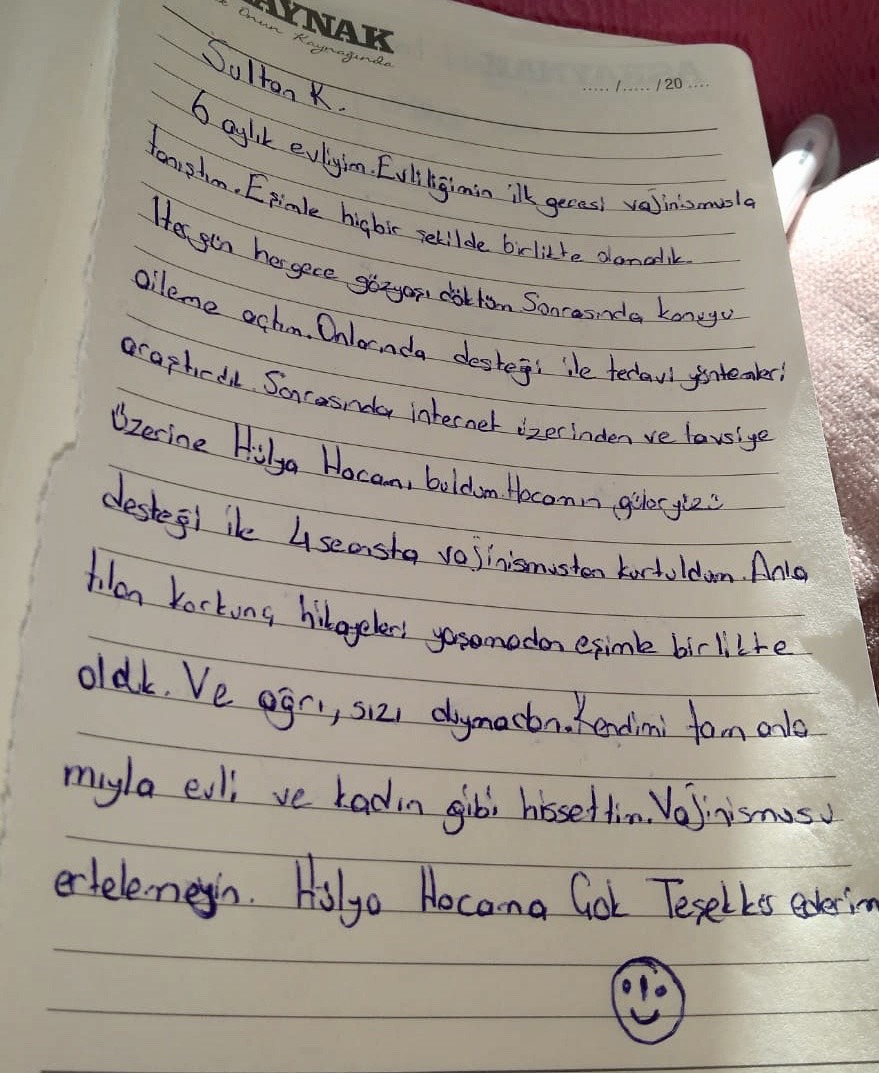 AYNAK
Onun Kaynağında
..... /..... /20 ....
Sultan K.
6 aylık evliyim. Evliliğimin ilk gecesi vajinismusla
tanıştım. Eşimle hiçbir şekilde birlikte olamadık.
Hergün hergece gözyaşı döktüm Sonrasında konuyu
aileme açtım. Onlarında desteği ile tedavi yöntemleri
araştırdık. Sonrasında internet üzerinden ve tavsiye
üzerine Hülya Hocamı buldum. Hocamın güleryüzü
desteği ile 4 seansta vajinismustan kurtuldum. Anla
tılan korkunç hikayeleri yaşamadan eşimle birlikte
olduk. Ve ağrı, sızı duymadan. Kendimi tam anla
mıyla evli ve kadın gibi hissettim. Vajinismusu
ertelemeyin. Hülya Hocama Çok Teşekkür ederim